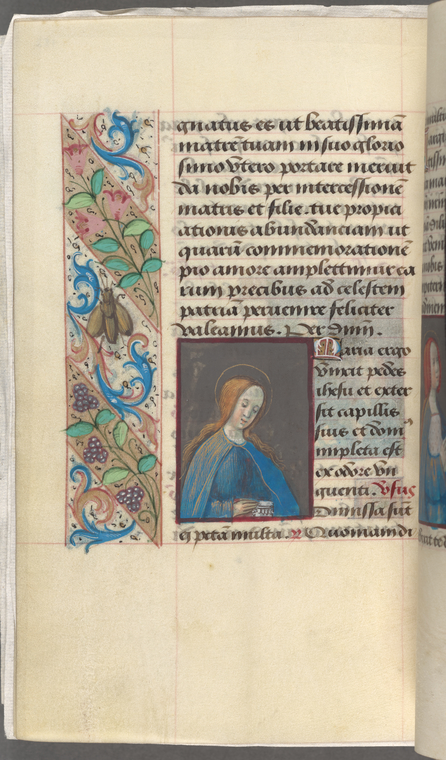 gnatus es ut beatissimā
matrē tuam in suo glorio
simo vtero portare meruit
da nobis per intercessione
matris et filie tue propici
ationis abundanciam ut
quarū commemorationē
pio amore amplettimur ea
rum precibus ad celestem
patriā peruenire feliciter
valeamus. Per dnm̄.
Maria ergo
vnxit pedes
ihesu et exter
sit capillis
suis et dom'
impleta est
ex odore vn
guenti. Vſus
Dimissa sūt
ei pctā multa. R Quoniam di